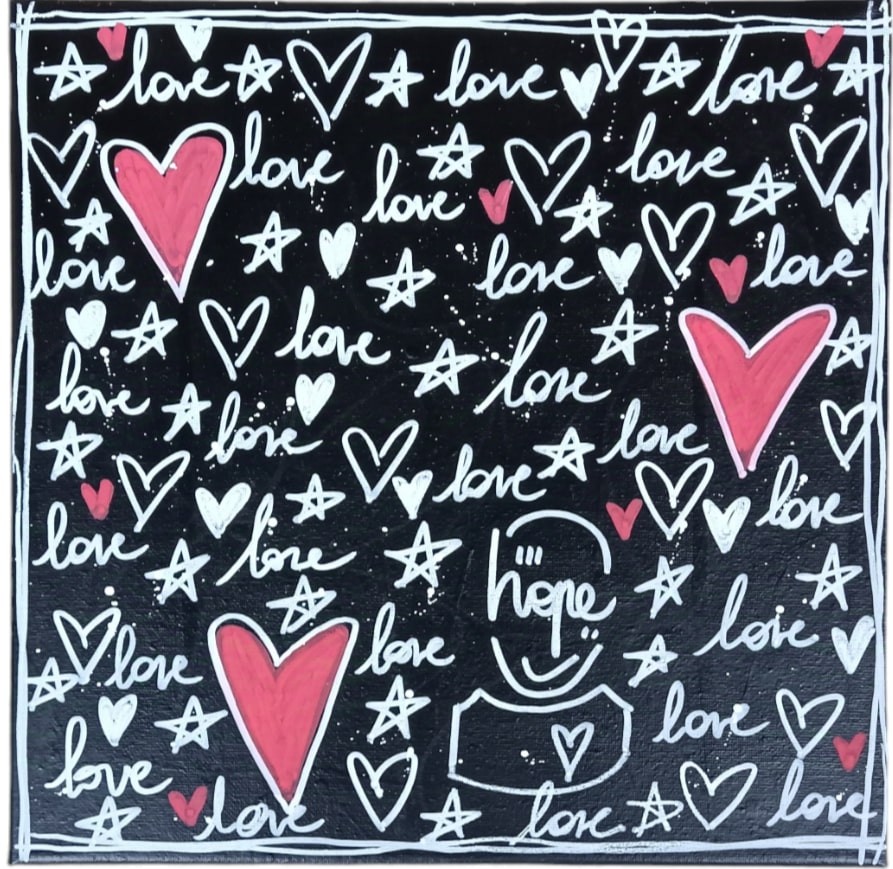 love love love
love love
love
love love love
love
love
love
love love
love love
love love
hope
love
love love
love
love
love love love